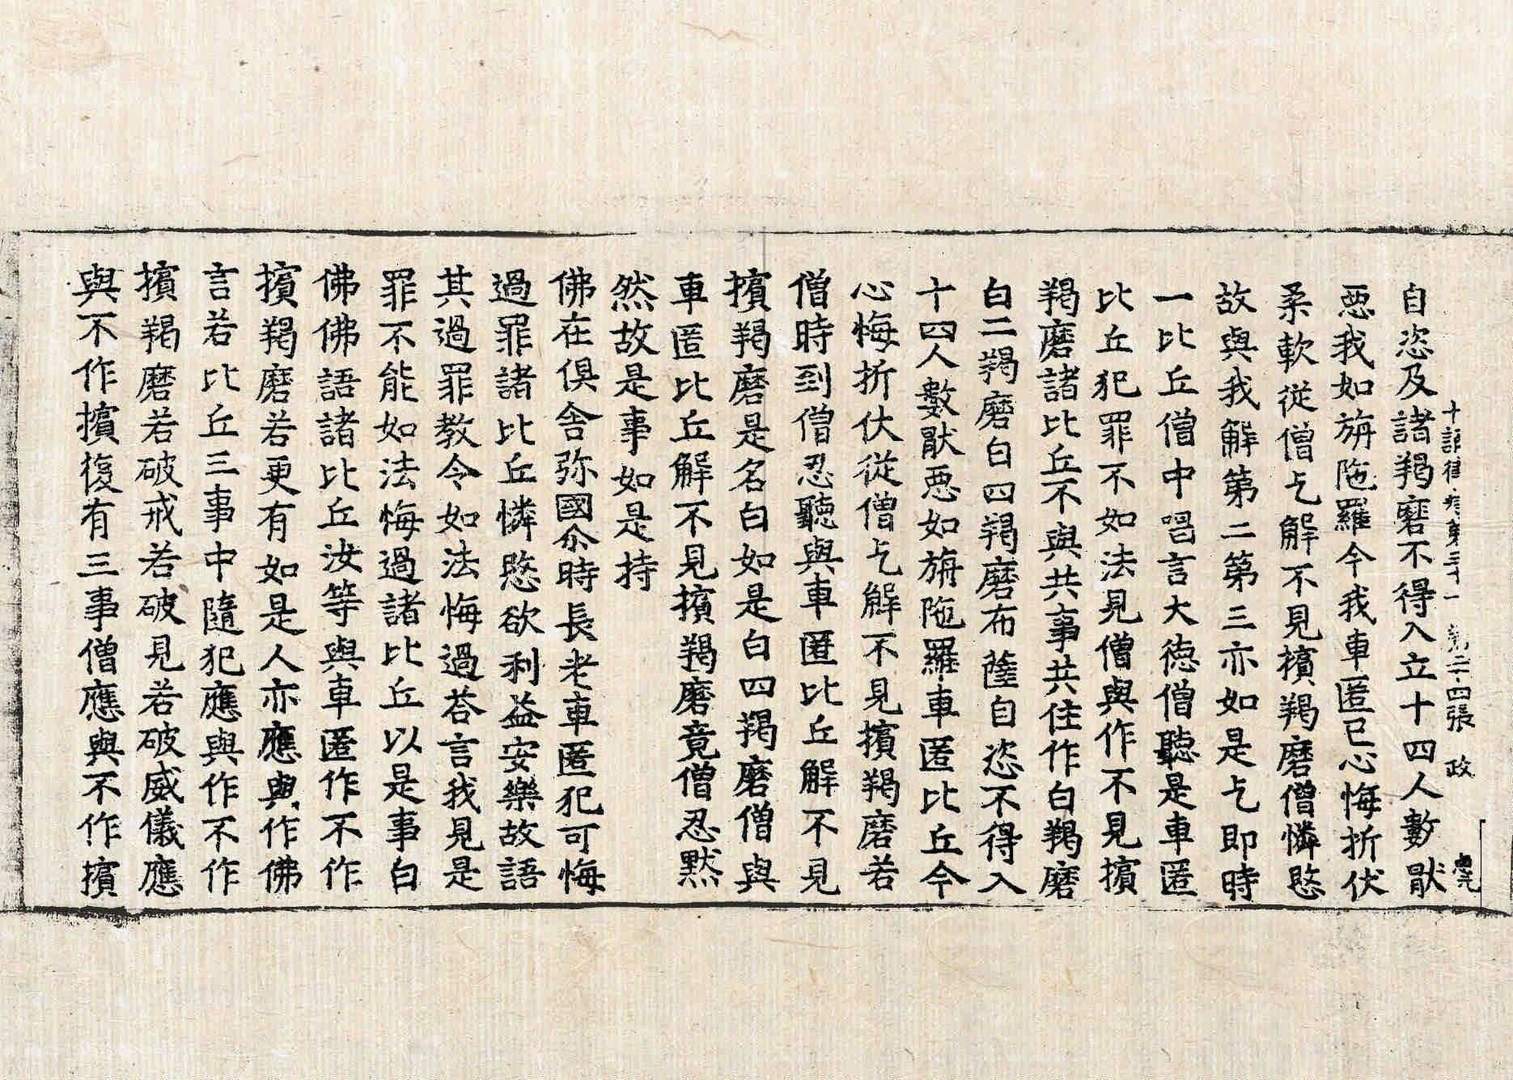 十誦律卷第三十一　第二十四張　政
自恣及諸羯磨不得入立十四人數猒
惡我如旃陁羅今我車匿已心悔折伏
柔軟從僧乞解不見擯羯磨僧憐愍
故與我解第二第三亦如是乞即時
一比丘僧中唱言大徳僧聽是車匿
比丘犯罪不如法見僧與作不見擯
羯磨諸比丘不與共事共住作白羯磨
白二羯磨白四羯磨布薩自恣不得入
十四人數猒惡如旃陁羅車匿比丘今
心悔折伏從僧乞解不見擯羯磨若
僧時到僧忍聽與車匿比丘解不見
擯羯磨是名白如是白四羯磨僧與
車匿比丘解不見擯羯磨竟僧忍黙
然故是事如是持
佛在俱舍弥國尒時長老車匿犯可悔
過罪諸比丘憐愍欲利益安樂故語
其過罪教令如法悔過荅言我見是
罪不能如法悔過諸比丘以是事白
佛佛語諸比丘汝等與車匿作不作
擯羯磨若更有如是人亦應與作佛
言若比丘三事中隨犯應與作不作
擯羯磨若破戒若破見若破威儀應
與不作擯復有三事僧應與不作擯